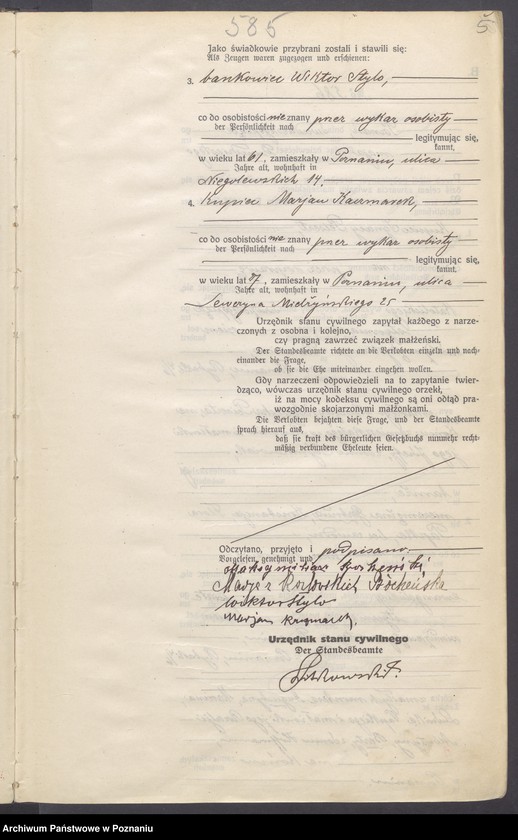 585
5
Jako świadkowie przybrani zostali i stawili się:
Als Zeugen waren zugezogen und erschienen:
3. bankowiec Wiktor Stylo,
co do osobistości nie znany przez wykaz osobisty
der Persönlichkeit nach
legitymując się,
kannt,
w wieku lat 61, zamieszkały w Poznaniu, ulica
Jahre alt, wohnhaft in
Niegolewskich 14.
4. Kupiec Marjan Kaczmarek,
co do osobistości nie znany przez wykaz osobisty
der Persönlichkeit nach
legitymując się,
kannt.
w wieku lat, zamieszkały w Poznaniu, ulica
Jahre alt, wohnhaft in
Seweryna Mielżyńskiego 25
Urzędnik stanu cywilnego zapytał każdego z narze-
czonych z osobna i kolejno,
czy pragną zawrzeć związek małżeński.
Der Standesbeamte richtete an die Verlobten einzeln und nach-
einander die Frage,
ob sie die Ehe miteinander eingehen wollen.
Gdy narzeczeni odpowiedzieli na to zapytanie twier-
dząco, wówczas urzędnik stanu cywilnego orzekł,
iż na mocy kodeksu cywilnego są oni odtąd pra-
wozgodnie skojarzonymi małżonkami.
Die Verlobten bejahten diese Frage, und der Standesbeamte
sprach hierauf aus,
daß sie kraft des bürgerlichen Gesetzbuchs nunmehr recht-
mäßig verbundene Eheleute seien.
Odczytano, przyjęto i podpisano.
Vorgelesen, genehmigt und
Marja z Kozłowskich Bocheńska
Wiktor Stylo
Marjan Kaczmarek,
Urzędnik stanu cywilnego
Der Standesbeamte
Archiwum Państwowe w Poznaniu